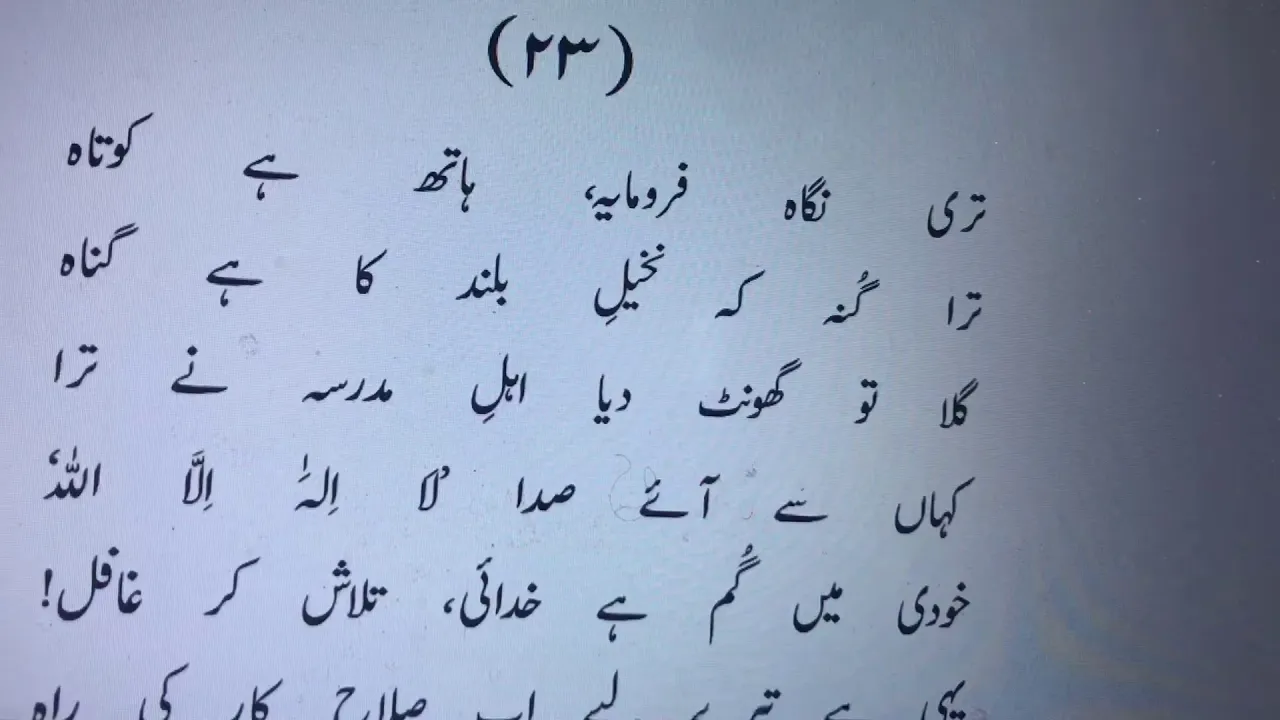 (۲۳)
تری نگاہ فرومایہ، ہاتھ ہے کوتاہ
ترا گُنہ کہ نخیلِ بلند کا ہے گناہ
گلا تو گھونٹ دیا اہلِ مدرسہ نے ترا
کہاں سے آئے صدا ’لَا اِلٰہَ اِلَّا اللہ‘
خودی میں گُم ہے خدائی، تلاش کر غافل!
یہی ہے تیرے لیے اب صلاحِ کار کی راہ